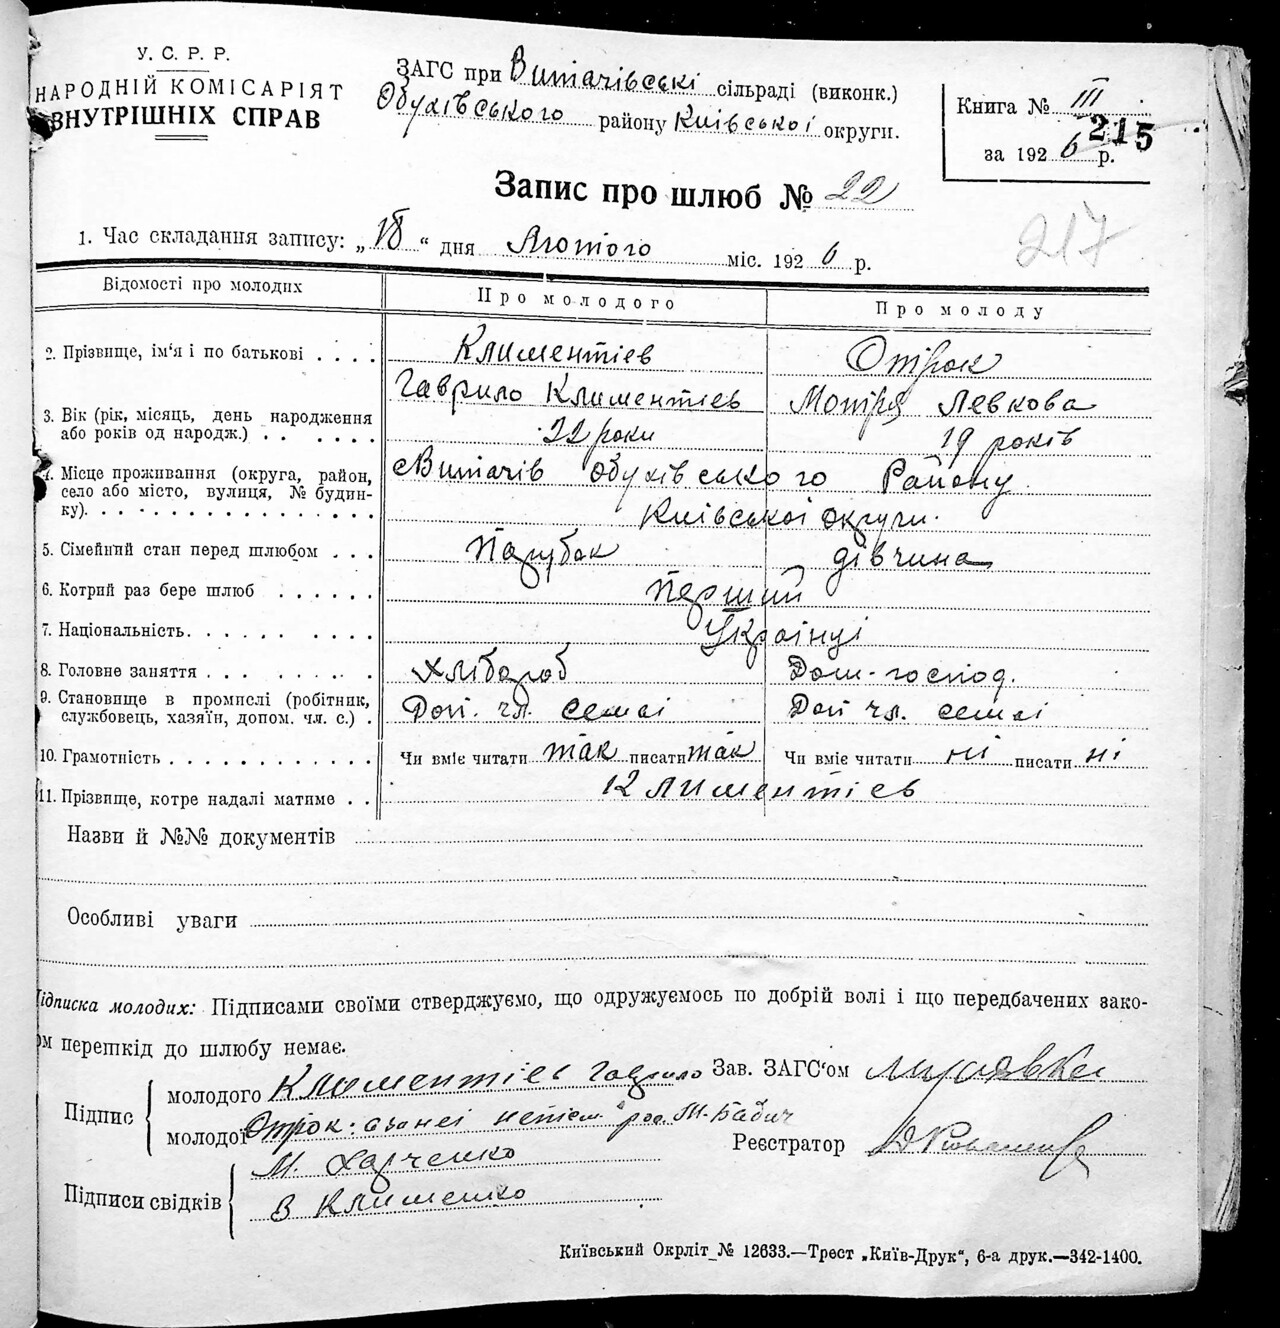 У. С. Р. Р.
НАРОДНІЙ КОМІСАРІЯТ
ВНУТРІШНІХ СПРАВ
ЗАГС при Витачівські сільраді (виконк.)
Обухівського району Київської округи.
Книга № III
215
за 1926 р.
Запис про шлюб № 22
217
1. Час складання запису: „18“ дня Лютого міс. 1926 р.
Відомості про молодих
Про молодого
Про молоду
2. Прізвище, ім‘я і по батькові . . . .
Климентіев
Отрок
Гаврило Климентіев
Мотря Левкова
3. Вік (рік, місяць, день народження
або років од народж.) . . . . . .
22 роки
19 років
4. Місце проживання (округа, район,
село або місто, вулиця, № будин-
ку). . . . . . . . . . . . . . .
с Витачів Обухівського Району
Київської округи.
5. Сімейний стан перед шлюбом . . .
Парубок
дівчина
6. Котрий раз бере шлюб . . . . . .
Перший
7. Національність. . . . . . . . . .
Українці
8. Головне заняття . . . . . . . . .
Хлібороб
Дом-господ.
9. Становище в промислі (робітник,
службовець, хазяїн, допом. чл. с.) .
Доп. чл. семьі
Доп чл. семьі
10. Грамотність . . . . . . . . . . . .
Чи вміє читати так писати так
Чи вміє читати ні писати ні
11. Прізвище, котре надалі матиме . .
Климентіев
Назви й №№ документів
Особливі уваги
Підписка молодих: Підписами своїми стверджуємо, що одружуємось по добрій волі і що передбачених зако-
ом перешкід до шлюбу немає.
Підпис
молодого Климентіев Гаврило
Зав. ЗАГС‘ом
молодої Отрок М. Бабич
Реєстратор
Підписи свідків
М. Харченко
В Клименко
Київський Окрліт № 12633.—Трест „Київ-Друк“, 6-а друк.—342-1400.